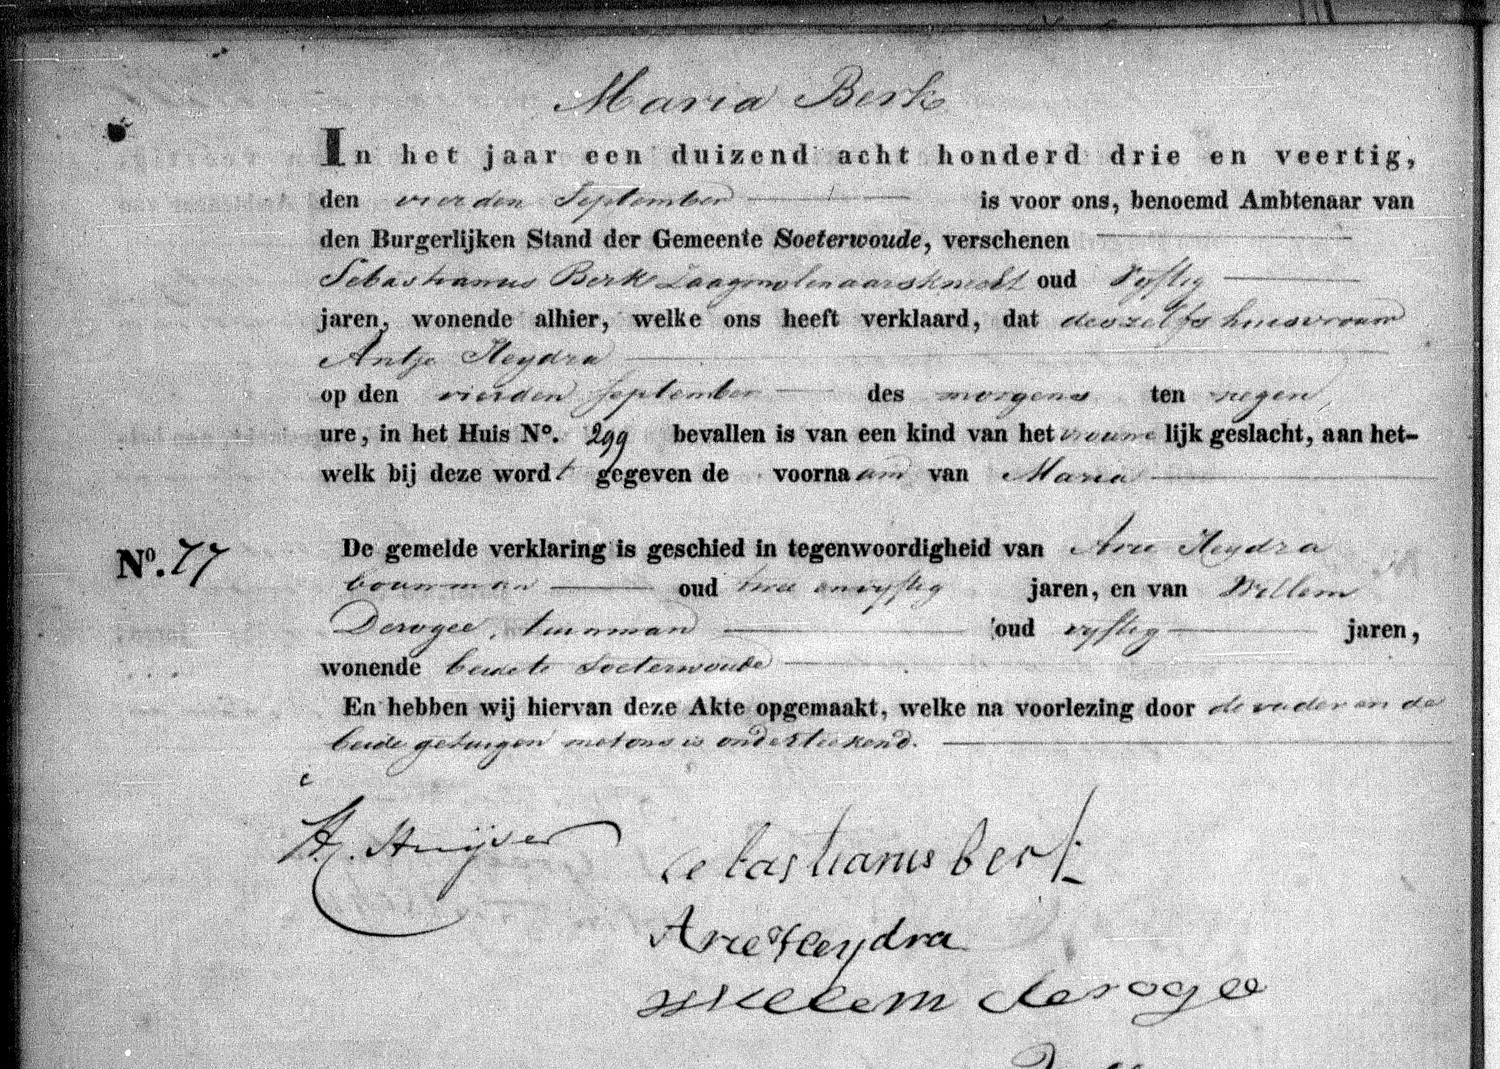 Maria Berk
In het jaar een duizend acht honderd drie en veertig,
den vierden September is voor ons, benoemd Ambtenaar van
den Burgerlijken Stand der Gemeente Soeterwoude, verschenen
Sebastianus Berk Zaagmolenaarsknecht oud Vyftig
jaren, wonende alhier, welke ons heeft verklaard, dat deszelfs huisvrouw
Antje Heydra
op den vierden September des morgens ten negen
ure, in het Huis No. 299 bevallen is van een kind van het vrouwelijk geslacht, aan het-
welk bij deze wordt gegeven de voornaam van Maria
No. 77
De gemelde verklaring is geschied in tegenwoordigheid van Arie Heydra
bouwman oud twee en vyftig jaren, en van Willem
Derogee, tuinman oud vyftig jaren,
wonende beide te Soeterwoude
En hebben wij hiervan deze Akte opgemaakt, welke na voorlezing door de vader en de
beide getuigen met ons is onderteekend.
Sebastianus berk
Arie Heydra
Willem derogee